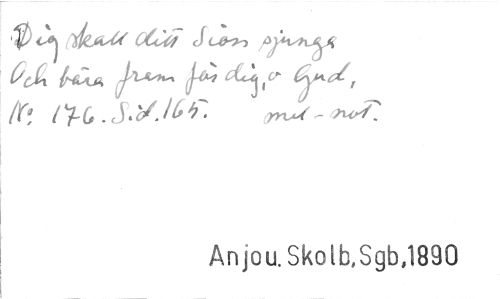 Dig skall ditt Sion sjunga
Och bära fram för dig, o Gud,
No 176. Sid. 165. mel-not.
Anjou. Skolb, Sgb, 1890